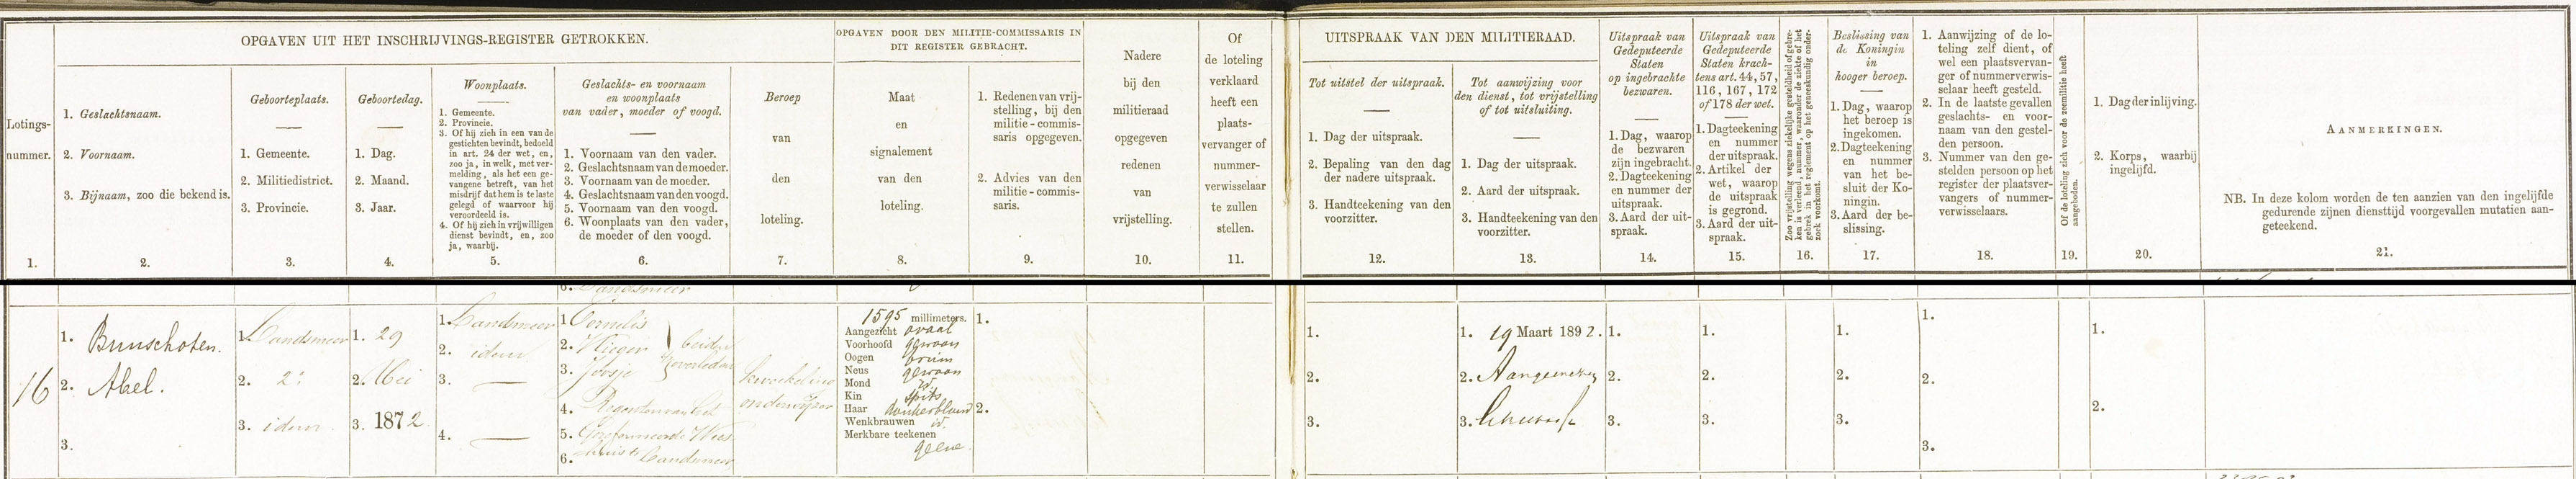 OPGAVEN UIT HET INSCHRIJVINGS-REGISTER GETROKKEN.
OPGAVEN DOOR DEN MILITIE-COMMISSARIS IN
DIT REGISTER GEBRACHT.
UITSPRAAK VAN DEN MILITIERAAD.
Lotings-
nummer.
1.
1. Geslachtsnaam.
2. Voornaam.
3. Bijnaam, zoo die bekend is.
2.
Geboorteplaats.
1. Gemeente.
2. Militiedistrict.
3. Provincie.
3.
Geboortedag.
1. Dag.
2. Maand.
3. Jaar.
4.
Woonplaats.
1. Gemeente.
2. Provincie.
3. Of hij zich in een van de
gestichten bevindt, bedoeld
in art. 24 der wet, en,
zoo ja, in welk, met ver-
melding, als het een ge-
vangene betreft, van het
misdrijf dat hem is te laste
gelegd of waarvoor hij
veroordeeld is.
4. Of hij zich in vrijwilligen
dienst bevindt, en, zoo
ja, waarbij.
5.
Geslachts- en voornaam
en woonplaats
van vader, moeder of voogd.
1. Voornaam van den vader.
2. Geslachtsnaam van de moeder.
3. Voornaam van de moeder.
4. Geslachtsnaam van den voogd.
5. Voornaam van den voogd.
6. Woonplaats van den vader,
de moeder of den voogd.
6.
Beroep
van
den
loteling.
7.
Maat
en
signalement
van den
loteling.
8.
1. Redenen van vrij-
stelling, bij den
militie-commis-
saris opgegeven.
2. Advies van den
militie-commis-
saris.
9.
Nadere
bij den
militieraad
opgegeven
redenen
van
vrijstelling.
10.
Of
de loteling
verklaard
heeft een
plaats-
vervanger of
nummer-
verwisselaar
te zullen
stellen.
11.
Tot uitstel der uitspraak.
1. Dag der uitspraak.
2. Bepaling van den dag
der nadere uitspraak.
3. Handteekening van den
voorzitter.
12.
Tot aanwijzing voor
den dienst, tot vrijstelling
of tot uitsluiting.
1. Dag der uitspraak.
2. Aard der uitspraak.
3. Handteekening van den
voorzitter.
13.
Uitspraak van
Gedeputeerde
Staten
op ingebrachte
bezwaren.
1. Dag, waarop
de bezwaren
zijn ingebracht.
2. Dagteekening
en nummer der
uitspraak.
3. Aard der uit-
spraak.
14.
Uitspraak van
Gedeputeerde
Staten krach-
tens art. 44, 57,
116, 167, 172
of 178 der wet.
1. Dagteekening
en nummer
der uitspraak.
2. Artikel der
wet, waarop
de uitspraak
is gegrond.
3. Aard der uit-
spraak.
15.
Zoo vrijstelling wegens ziekelijke gesteldheid of gebre-
ken is verleend, nummer, waaronder de ziekte of het
gebrek in het reglement op het geneeskundig onder-
zoek voorkomt.
16.
Beslissing van
de Koningin
in
hooger beroep.
1. Dag, waarop
het beroep is
ingekomen.
2. Dagteekening
en nummer
van het be-
sluit der Ko-
ningin.
3. Aard der be-
slissing.
17.
1. Aanwijzing of de lo-
teling zelf dient, of
wel een plaatsvervan-
ger of nummerverwis-
selaar heeft gesteld.
2. In de laatste gevallen
geslachts- en voor-
naam van den gestel-
den persoon.
3. Nummer van den ge-
stelden persoon op het
register der plaatsver-
vangers of nummer-
verwisselaars.
18.
Of de loteling zich voor de zeemilitie heeft
aangeboden.
19.
1. Dag der inlijving.
2. Korps, waarbij
ingelijfd.
20.
AANMERKINGEN.
NB. In deze kolom worden de ten aanzien van den ingelijfde
gedurende zijnen diensttijd voorgevallen mutatien aan-
geteekend.
21.
6. Landsmeer
16
1. Bunschoten.
2. Abel.
3.
1. Landsmeer
2. 2e
3. idem.
1. 29
2. Mei
3. 1872.
1. Landsmeer
2. idem
3. —
4. —
1 Cornelis
2. Vlieger
3. Joosje
beiden
overleden
4. Regenten van het
5. Gereformeerde Wees
6. huis te Landsmeer
kweekeling
onderwijzer
1595 millimeters.
Aangezicht ovaal
Voorhoofd gewoon
Oogen bruin
Neus gewoon
Mond id.
Kin spits
Haar donkerblond
Wenkbrauwen id.
Merkbare teekenen
geene.
1.
2.
1.
2.
3.
1. 19 Maart 1892.
2. Aangewezen
3.
1.
2.
3.
1.
2.
3.
1.
2.
3.
1.
2.
3.
1.
2.